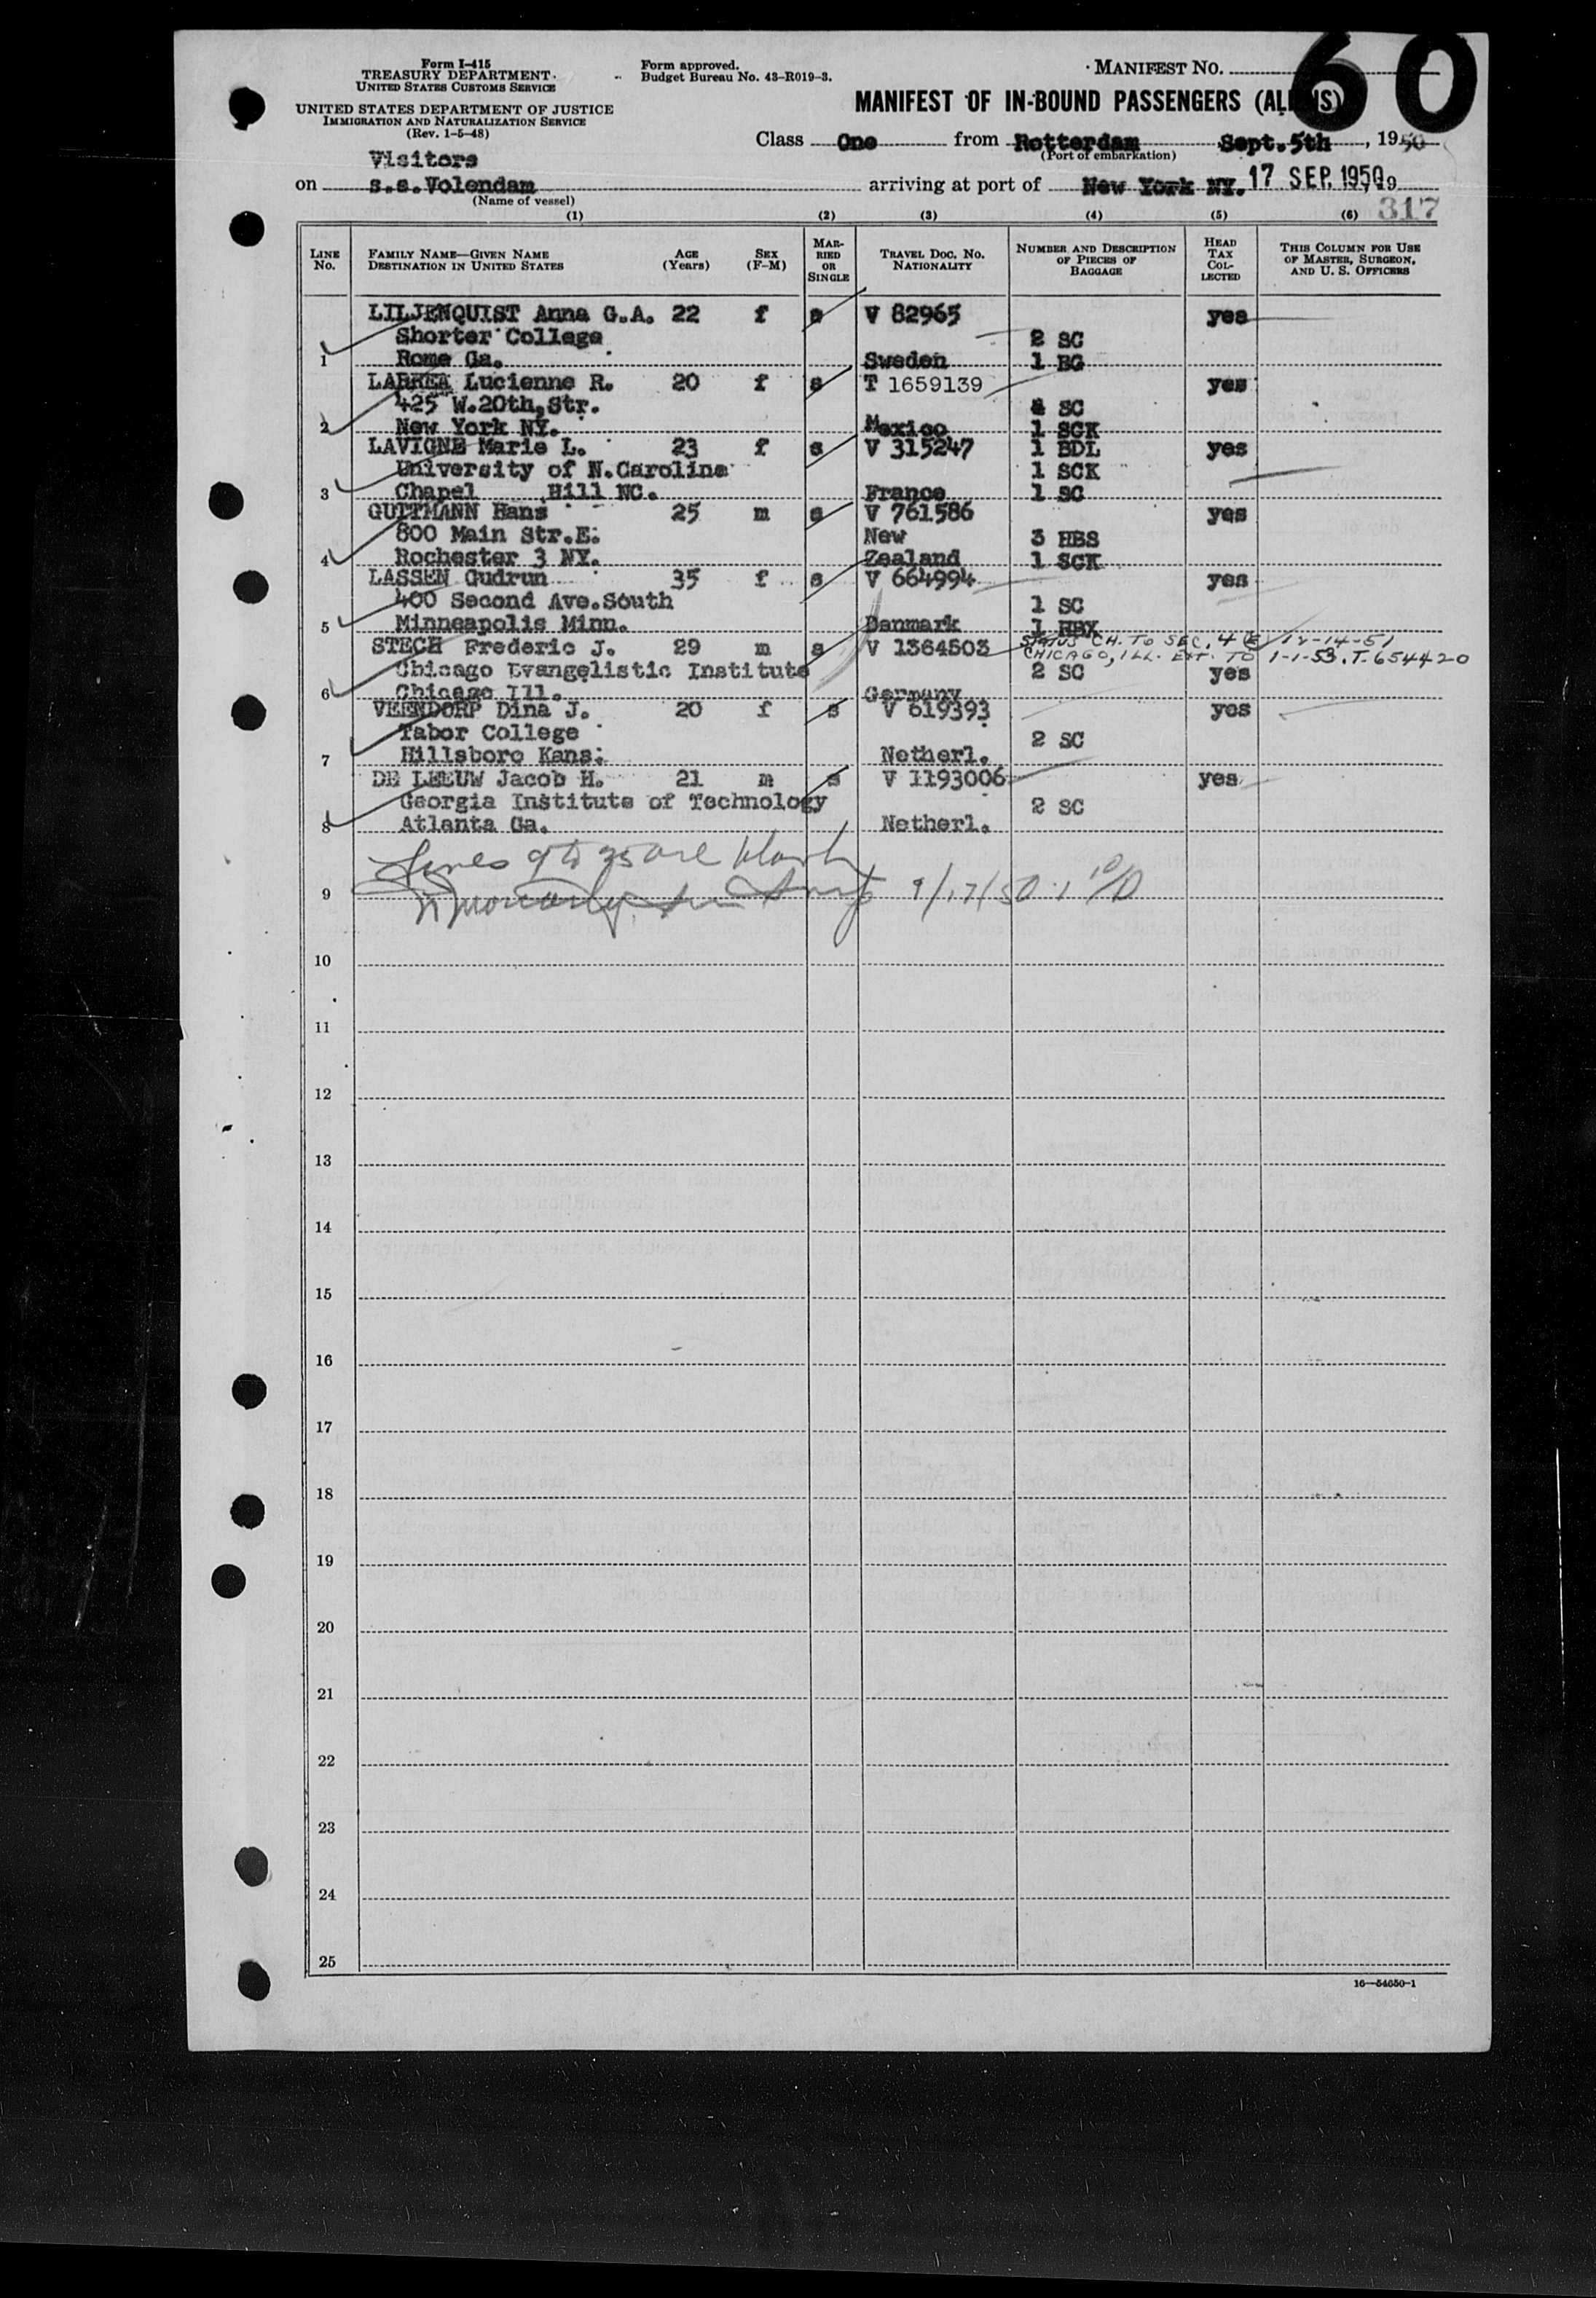 Form I-415
TREASURY DEPARTMENT
UNITED STATES CUSTOMS SERVICE
UNITED STATES DEPARTMENT OF JUSTICE
IMMIGRATION AND NATURALIZATION SERVICE
(Rev. 1-5-48)
Form approved.
Budget Bureau No. 43-R019-3.
MANIFEST NO. 60
MANIFEST OF IN-BOUND PASSENGERS (ALIENS)
Class One from Rotterdam Sept.5th, 1950
(Port of embarkation)
Visitors
on s.s.Volendam arriving at port of New York NY. 17 SEP. 1950, 19
(Name of vessel)
317
(1) (2) (3) (4) (5) (6)
LINE No.
FAMILY NAME—GIVEN NAME
DESTINATION IN UNITED STATES
AGE (Years)
SEX (F-M)
MARRIED OR SINGLE
TRAVEL DOC. NO.
NATIONALITY
NUMBER AND DESCRIPTION OF PIECES OF BAGGAGE
HEAD TAX COLLECTED
THIS COLUMN FOR USE OF MASTER, SURGEON, AND U. S. OFFICERS
LILJENQUIST Anna G.A. 22 f s V 82965 yes
Shorter College 2 SC
1 Rome Ga. Sweden 1 BG
LARREA Lucienne R. 20 f s T 1659139 yes
425 W.20th,Str. SC
2 New York NY. Mexico 1 SCK
LAVIGNE Marie L. 23 f s V 315247 1 BDL yes
University of N.Carolina 1 SCK
3 Chapel Hill NC. France 1 SC
GUTTMANN Hans 25 m s V 761586 yes
800 Main Str.E. New 3 HBS
4 Rochester 3 NY. Zealand 1 SCK
LASSEN Gudrun 35 f s V 664994 yes
400 Second Ave.South 1 SC
5 Minneapolis Minn. Danmark 1 HBX
STATUS CH. TO SEC. 4 E 12-14-51
STECH Frederic J. 29 m s V 1364503 CHICAGO, ILL. EXT. TO 1-1-53. T-654420
Chicago Evangelistic Institute 2 SC yes
6 Chicago Ill. Germany
VEENDORP Dina J. 20 f s V 619393 yes
Tabor College 2 SC
7 Hillsboro Kans. Netherl.
DE LEEUW Jacob H. 21 m s V 1193006 yes
Georgia Institute of Technology 2 SC
8 Atlanta Ga. Netherl.
Lines 9 to 25 are blank
9 9/17/50
10
11
12
13
14
15
16
17
18
19
20
21
22
23
24
25
16—54650-1